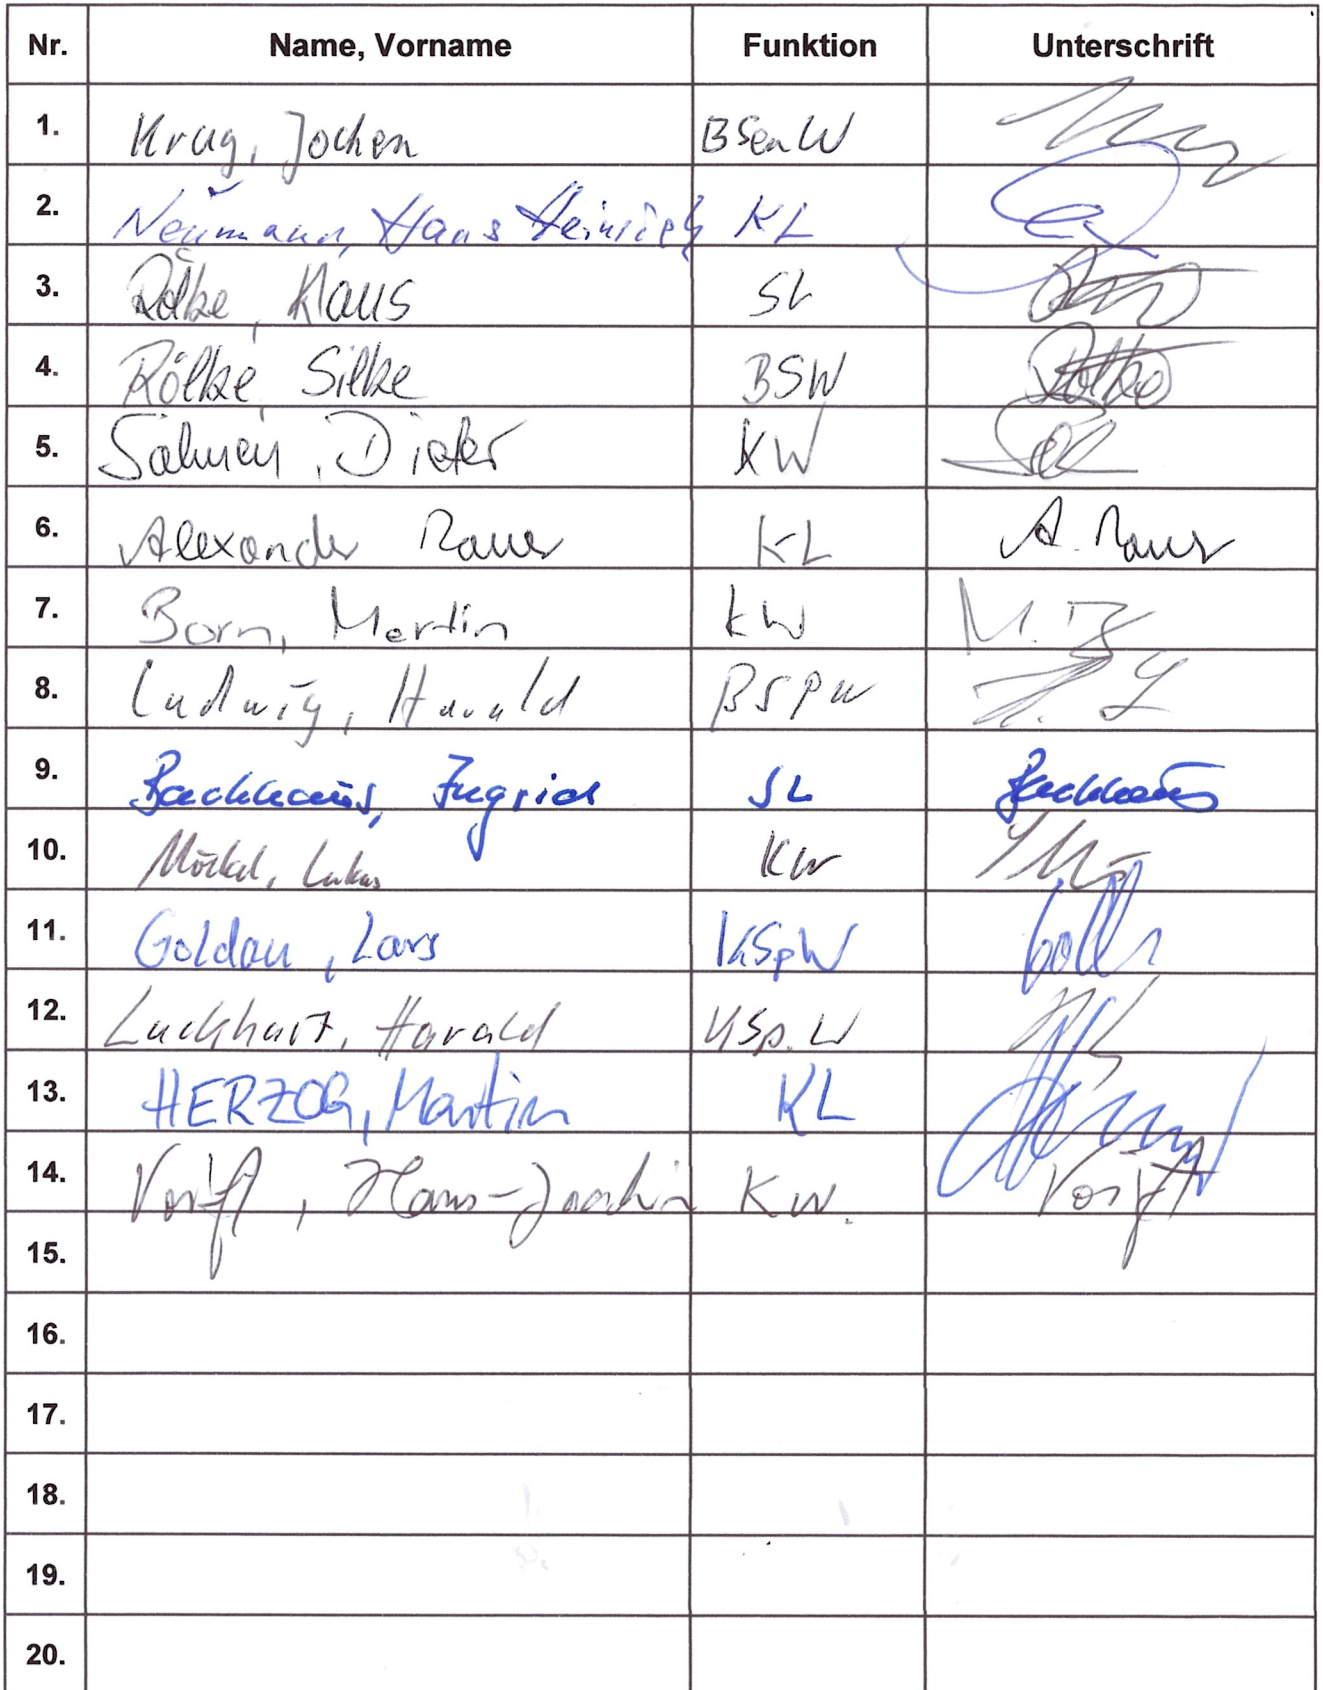 Nr. Name, Vorname Funktion Unterschrift
1. Krug, Jochen BSenW
2. Neumann, Hans Heinrich KL
3. Rölke, Klaus SL
4. Rölke, Silke BSW Rölke
5. Dieter KW
6. Alexander Rauer KL A. Rauer
7. Born, Martin KW
8. Ludwig, Harald BSPW H. L
9. Backhaus, Ingrid SL Backhaus
10. Möckel, Lukas KW
11. Goldau, Lars KSpW
12. Luckhart, Harald KSp.W
13. HERZOG, Martin KL
14. Hans-Joachim KW.
15.
16.
17.
18.
19.
20.